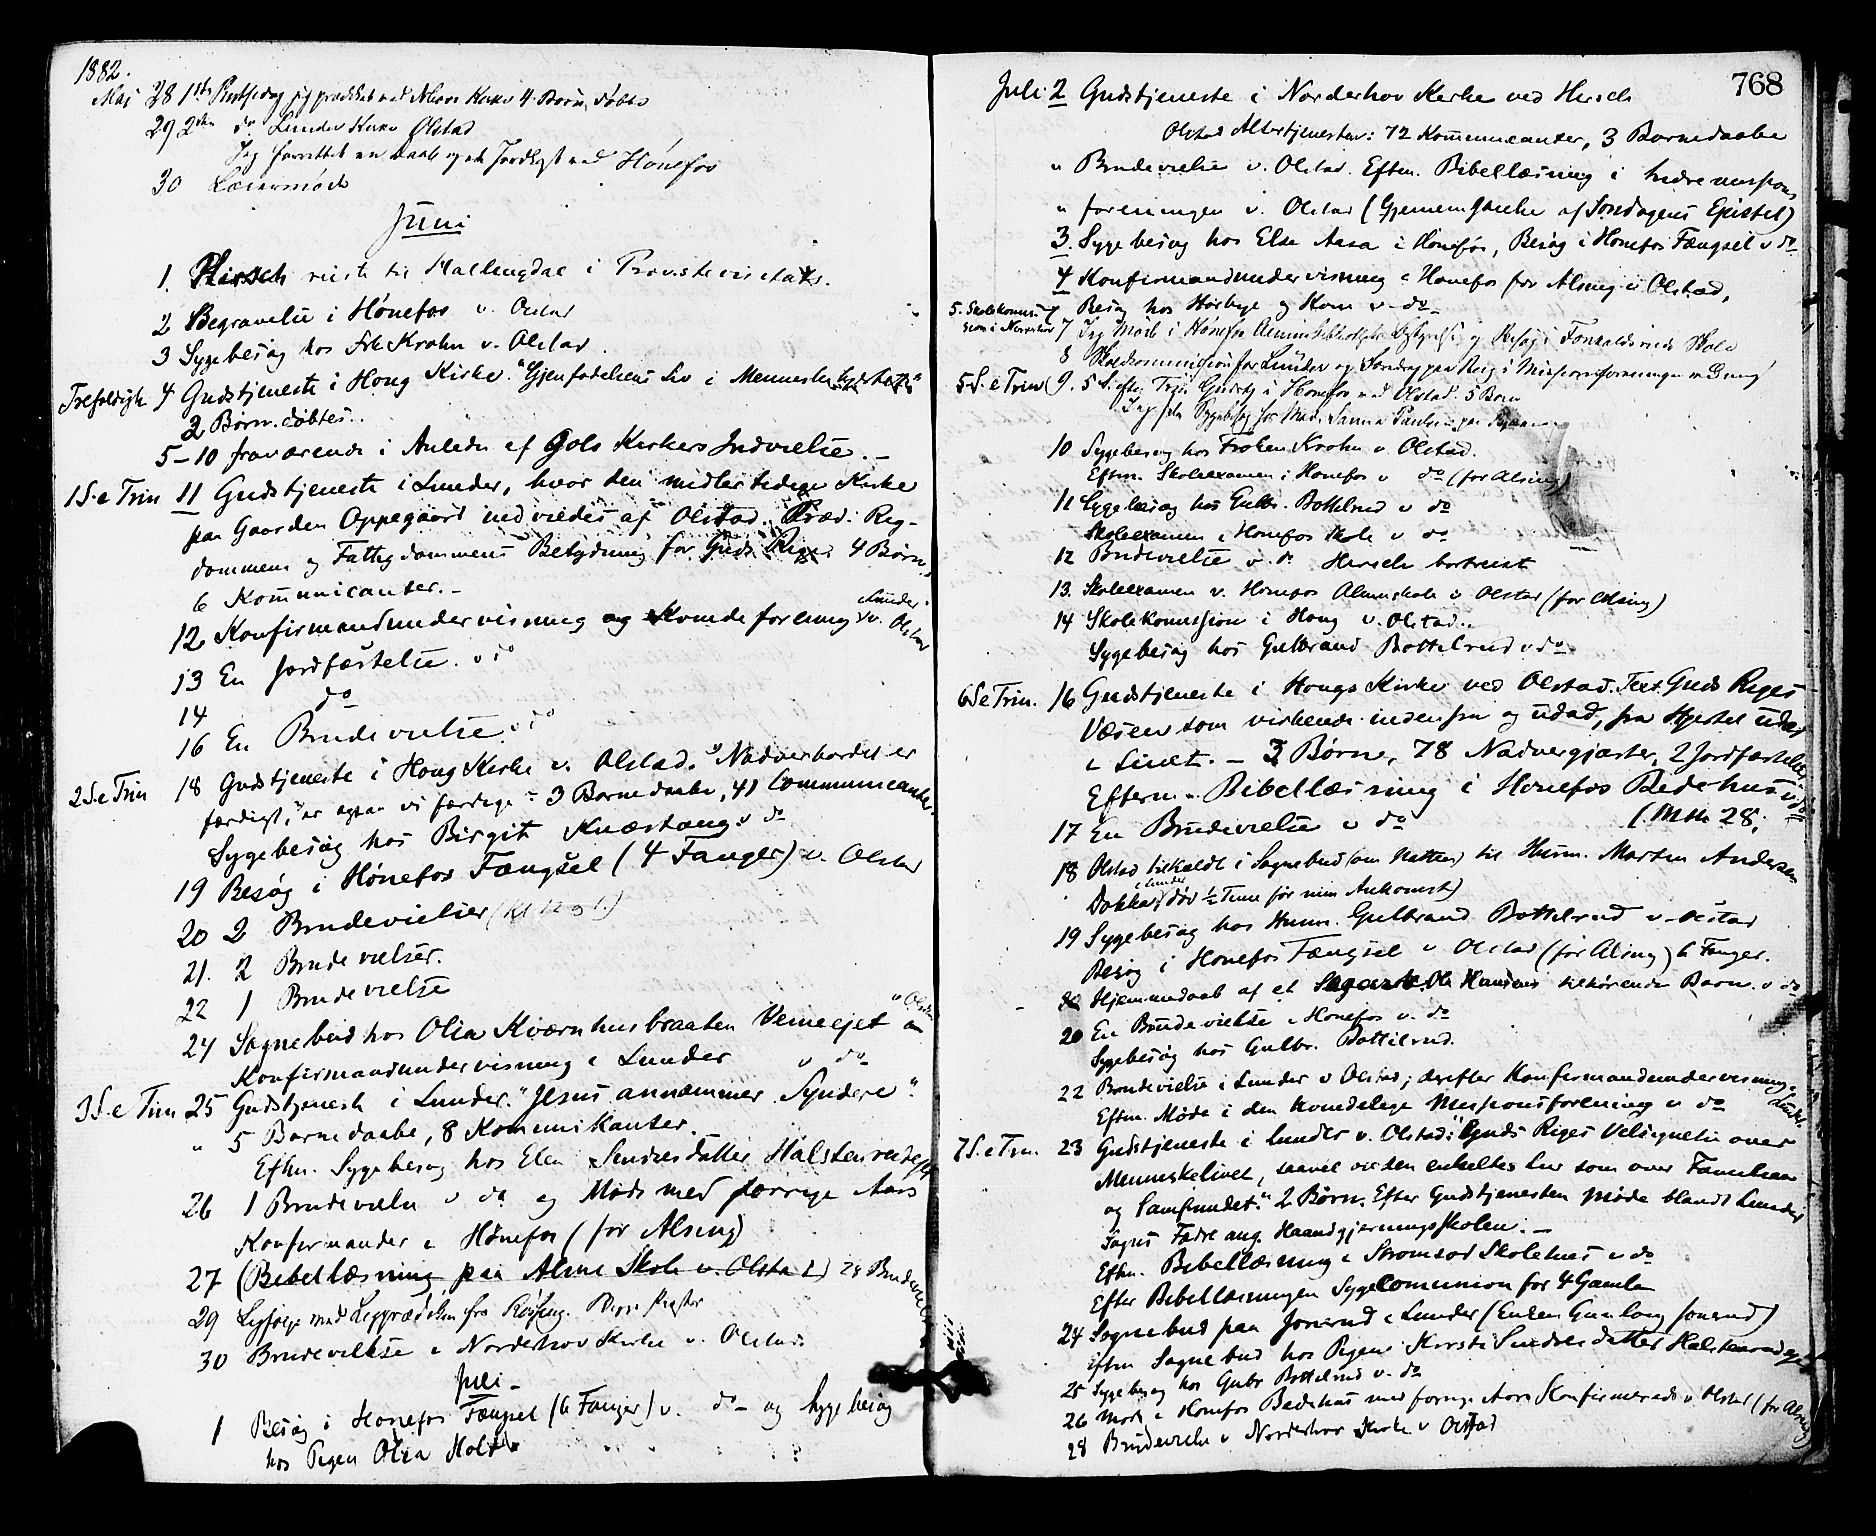 1882.
Mai 28 1ste Pintsedag jeg prædiket ved Kirke 4 Børn døbte
29 2den do. Lunder Kirke Olstad
Jeg forrettet en Daab og et ved Hønefos
30 Læsermøde
Juni
1. Hirsch reiste til Hallingdal i Provstevisitats.
2 Begravelse i Hønefos v. Olstad
3 Sygebesøg hos Frk Krohn v. Olstad
Trefoldigh 4 Gudstjeneste i Houg Kirke. "Gjenfødelsens Liv i Menneske
2 Børn døbtes..
5-10 fraværende i Anledn af Gols Kirkes Indvielse. -
1 S. e Trin 11 Gudstjeneste i Lunder, hvor den midlertidige Kirke
paa Gaarden Oppegaard indviedes af Olstad. Præd: Rig-
dommens og Fattigdommens Betydning for Guds Rige. 4 Børn,
6 Kommunicanter. -
12 Konfirmandundervisning og Kvindeforening i Lunder v. Olstad
13 En Jordfæstelse. v do
14 do
16 En Brudevielse v do
2 S. e Trin 18 Gudstjeneste i Houg Kirke v. Olstad. "Nadverbordet er
færdigt, er ogsaa vi færdige" 3 Barnedaabe, 41 Communicanter.
Sygebesøg hos Birgit Knæstang v do
19 Besøg i Hønefos Fængsel (4 Fanger) v. Olstad
20 2 Brudevielser
21. 2 Brudevielser.
22 1 Brudevielse
24 Sognebud hos Olia Kværnhusbraaten Vemeejet v Olstad
Konfirmandundervisning i Lunder v do
3 S. e Trin 25 Gudstjeneste i Lunder. "Jesus annammer Syndere".
" 5 Barnedaabe, 8 Kommunikanter.
Eftm. Sygebesøg hos Elen Sindresdatter Halstenrudeje
26 1 Brudevielse v do og Møde med forrige Aars
Konfirmander i Hønefos (for Alsing)
27 (Bibellæsning paa Almue Skole v. Olstad) 28 Brudevielse
29 Ligfølge med Ligprædiken fra
30 Brudevielse i Norderhov Kirke v. Olstad.
Juli -
1 Besøg i Hønefos Fængsel (6 Fanger) v. do - og Sygebesøg
hos Pigen Olia Holt
768
Juli 2 Gudstjeneste i Norderhov Kirke ved Hirsch
Olstad Altertjenesten: 72 Kommunicanter, 3 Barnedaabe
" Brudevielse v. Olstad. Eftm. Bibellæsning i Indremissions
" foreningen v. Olstad (Gjennemgaaelse af Søndagens Epistel)
3. Sygebesøg hos Else Aasa i Hønefos, Besøg i Hønefos Fængsel v do
4 Konfirmandundervisning i Hønefos for Alsing v Olstad,
Besøg hos Hørbye og Kone v do
5. Skolekommission i Norderhov
7 Jeg Møde i Hønefos
8 Skolekommission for Lunder og
5 S. e Trin 9. 5 S. efter Trin. Gudstj i Hønefos ved Olstad. 5 Børn
Jeg Sygebesøg
10 Sygebesøg hos Frøken Krohn v Olstad.
Eftm. Skoleexamen i Hønefos v do (for Alsing)
11 Sygebesøg hos Gulbr. Bottelrud v do
Skoleexamen i Hønefos Skole v do
12 Brudevielse v. do Hirsch bortreist
13. Skoleexamen v. Hønefos Almueskole v Olstad (for Alsing)
14 Skolekomission i Houg v. Olstad..
Sygebesøg hos Gulbrand Bottelrud v do
6 S e Trin. 16 Gudstjeneste i Hougs Kirke ved Olstad. Text. Guds Riges
Væsen som virkende indenfra og udad, fra Hjertet udad
i Livet. - 3 Børn, 78 Nadvergjæster, 2 Jordfæstelser
Eftm. Bibellæsning i Hønefos Bedehus v do
17 En Brudevielse v do (Mth 28,
18 Olstad tilkaldt i Sognebud (om Natten) til Husm. Morten Andersen
Dokka i Lunder (død ½ Time før min Ankomst)
19 Sygebesøg hos Husm. Gulbrand Bottelrud v. Olstad
Besøg i Hønefos Fængsel v Olstad (for Alsing) 6 Fanger.
Hjemmedaab af et Ole Hansens tilhørende Barn v. do
20 En Brudevielse i Hønefos v. do
Sygebesøg hos Gulbr. Bottilrud.
22 Brudevielse i Lunder v Olstad; derefter Konfirmandundervisning i Lunder.
Eftm. Møde i den kvindelige Missionsforening v do
7 S. e Trin. 23 Gudstjeneste i Lunder v. Olstad: "Guds Riges Velsignelse over
Menneskelivet, saavel den enkeltes Liv som over Familien
og Samfundet." 2 Børn. Efter Gudstjenesten Møde blandt Lunder
Sogns Fædre ang. Haandgjerningsskolen. -
Eftm. Bibellæsning i Strømsod Skolehus v do
Efter Bibellæsningen Sygecomunion for 4 Gamle
24 Sognebud paa Jonsrud i Lunder (Enken Gunlaug Jonsrud)
Eftm Sognebud hos Pigen Kirsti Sindresdatter Halstenrudeje
25 Sygebesøg hos Gulbr Bottelrud v. do
26 Møde i Hønefos Bedehus med forrige Aars Konfirmerede v. Olstad (for Alsing)
28 Brudevielse v Norderhov Kirke v Olstad